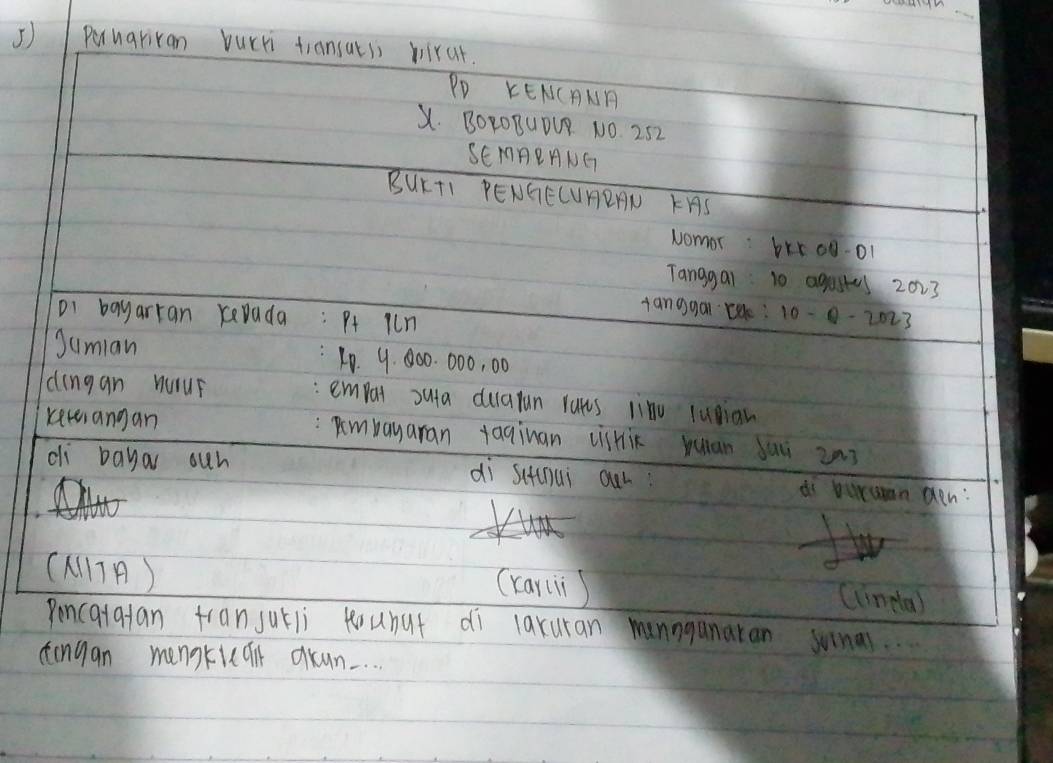 5) Perhatikan bukti transaksi birut.
PD KENCANA
Jl. BOROBUDUR NO. 252
SEMARANG
BUKTI PENGELUARAN KAS
Nomor : bkk 08-01
Tanggal : 10 agustus 2023
tanggal cek : 10 - 8 - 2023
Di bayarkan kepada : Pt Pln
Jumlah : Rp. 4.800.000,00
dengan huruf : empat juta delapan ratus ribu rupiah
keterangan : Pembayaran tagihan listrik bulan Juli 2023
di bayar oleh
di setujui oleh :
di bukukan oleh :
(NITA)
(Karlii)
(linda)
Pencatatan transaksi tersebut di lakukan menggunakan jurnal....
dengan mengkredit akun....